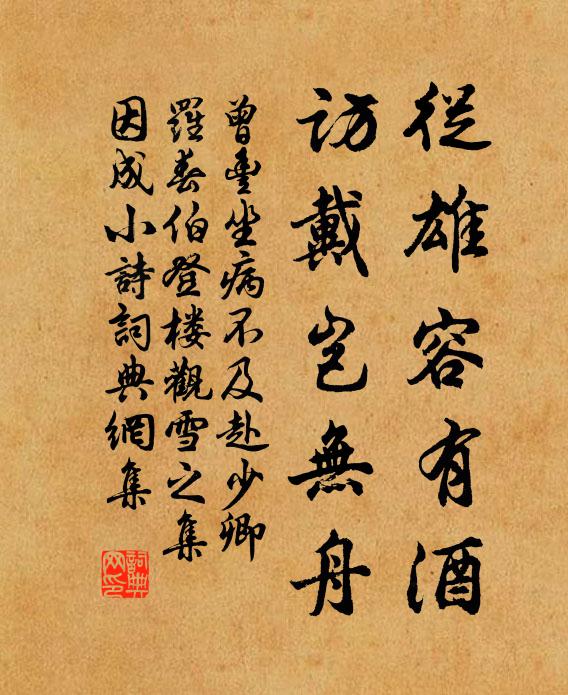 從雄容有酒
訪戴豈無舟
曾豐坐病不及赴少卿
羅春伯登樓觀雪之集
因成小詩詞典網集
詞典
网印